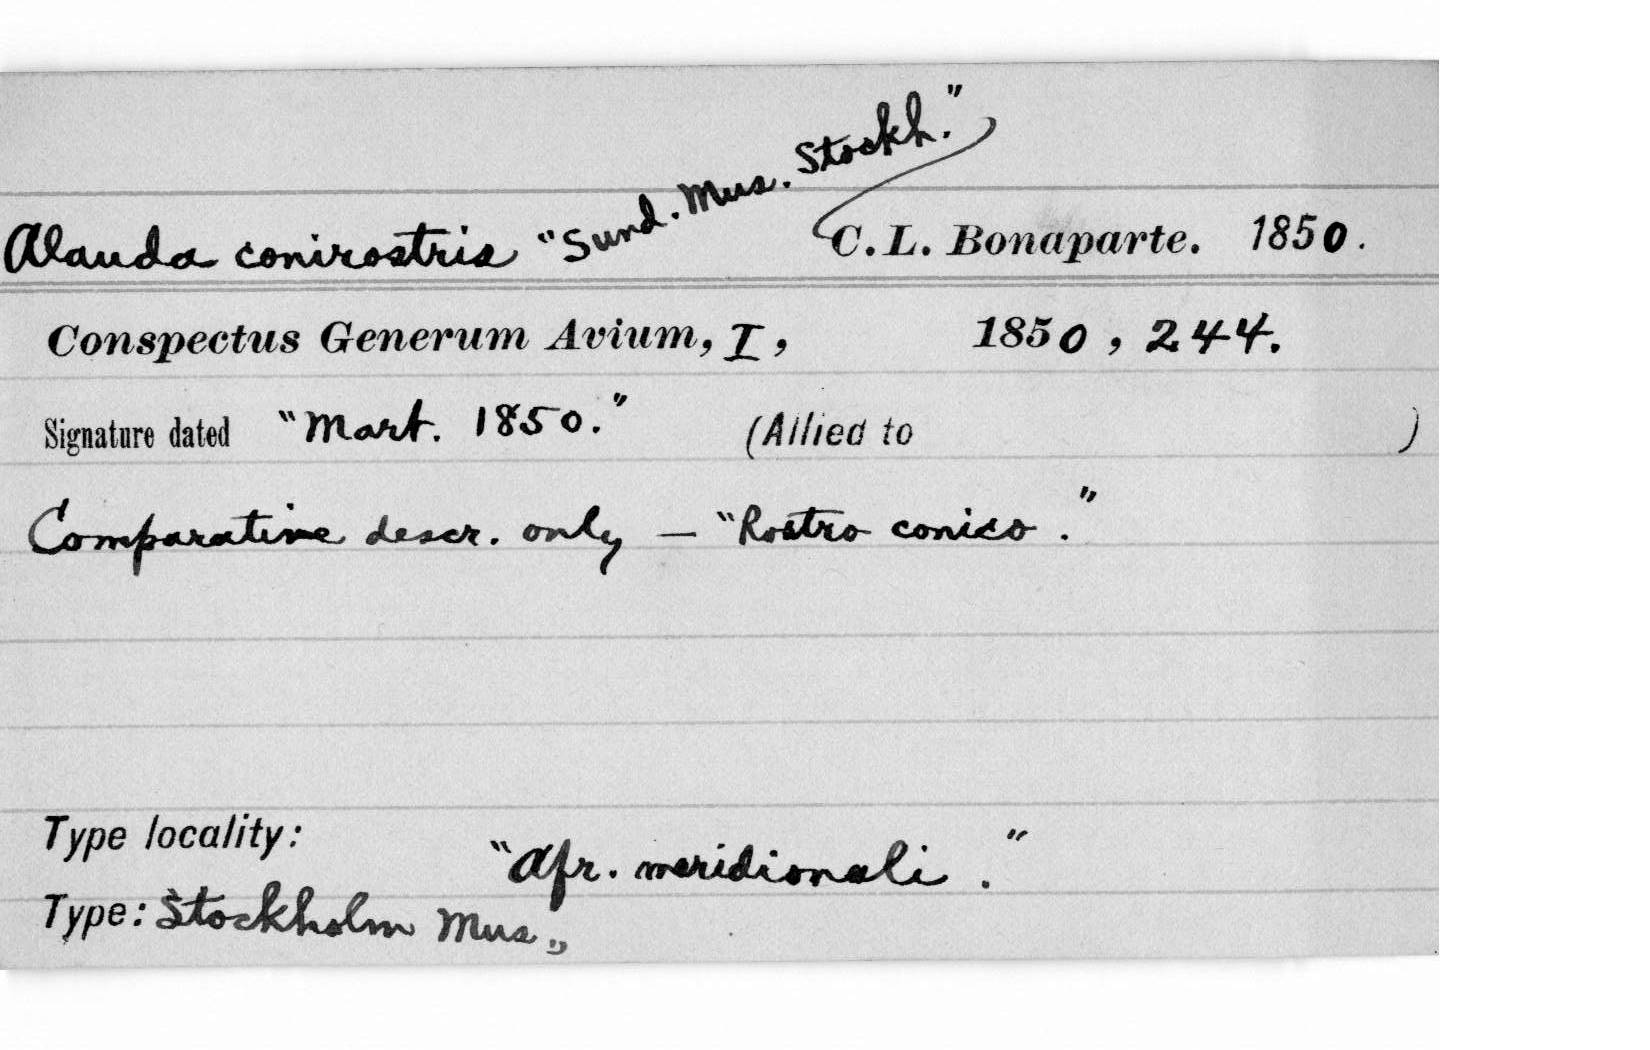 Alauda conirostris "Sund. Mus. Stockh." C. L. Bonaparte. 1850.
Conspectus Generum Avium, I, 1850, 244.
Signature dated "Mart. 1850." (Allied to )
Comparative descr. only — "Rostro conico."
Type locality: "Afr. meridionali."
Type: Stockholm Mus.,